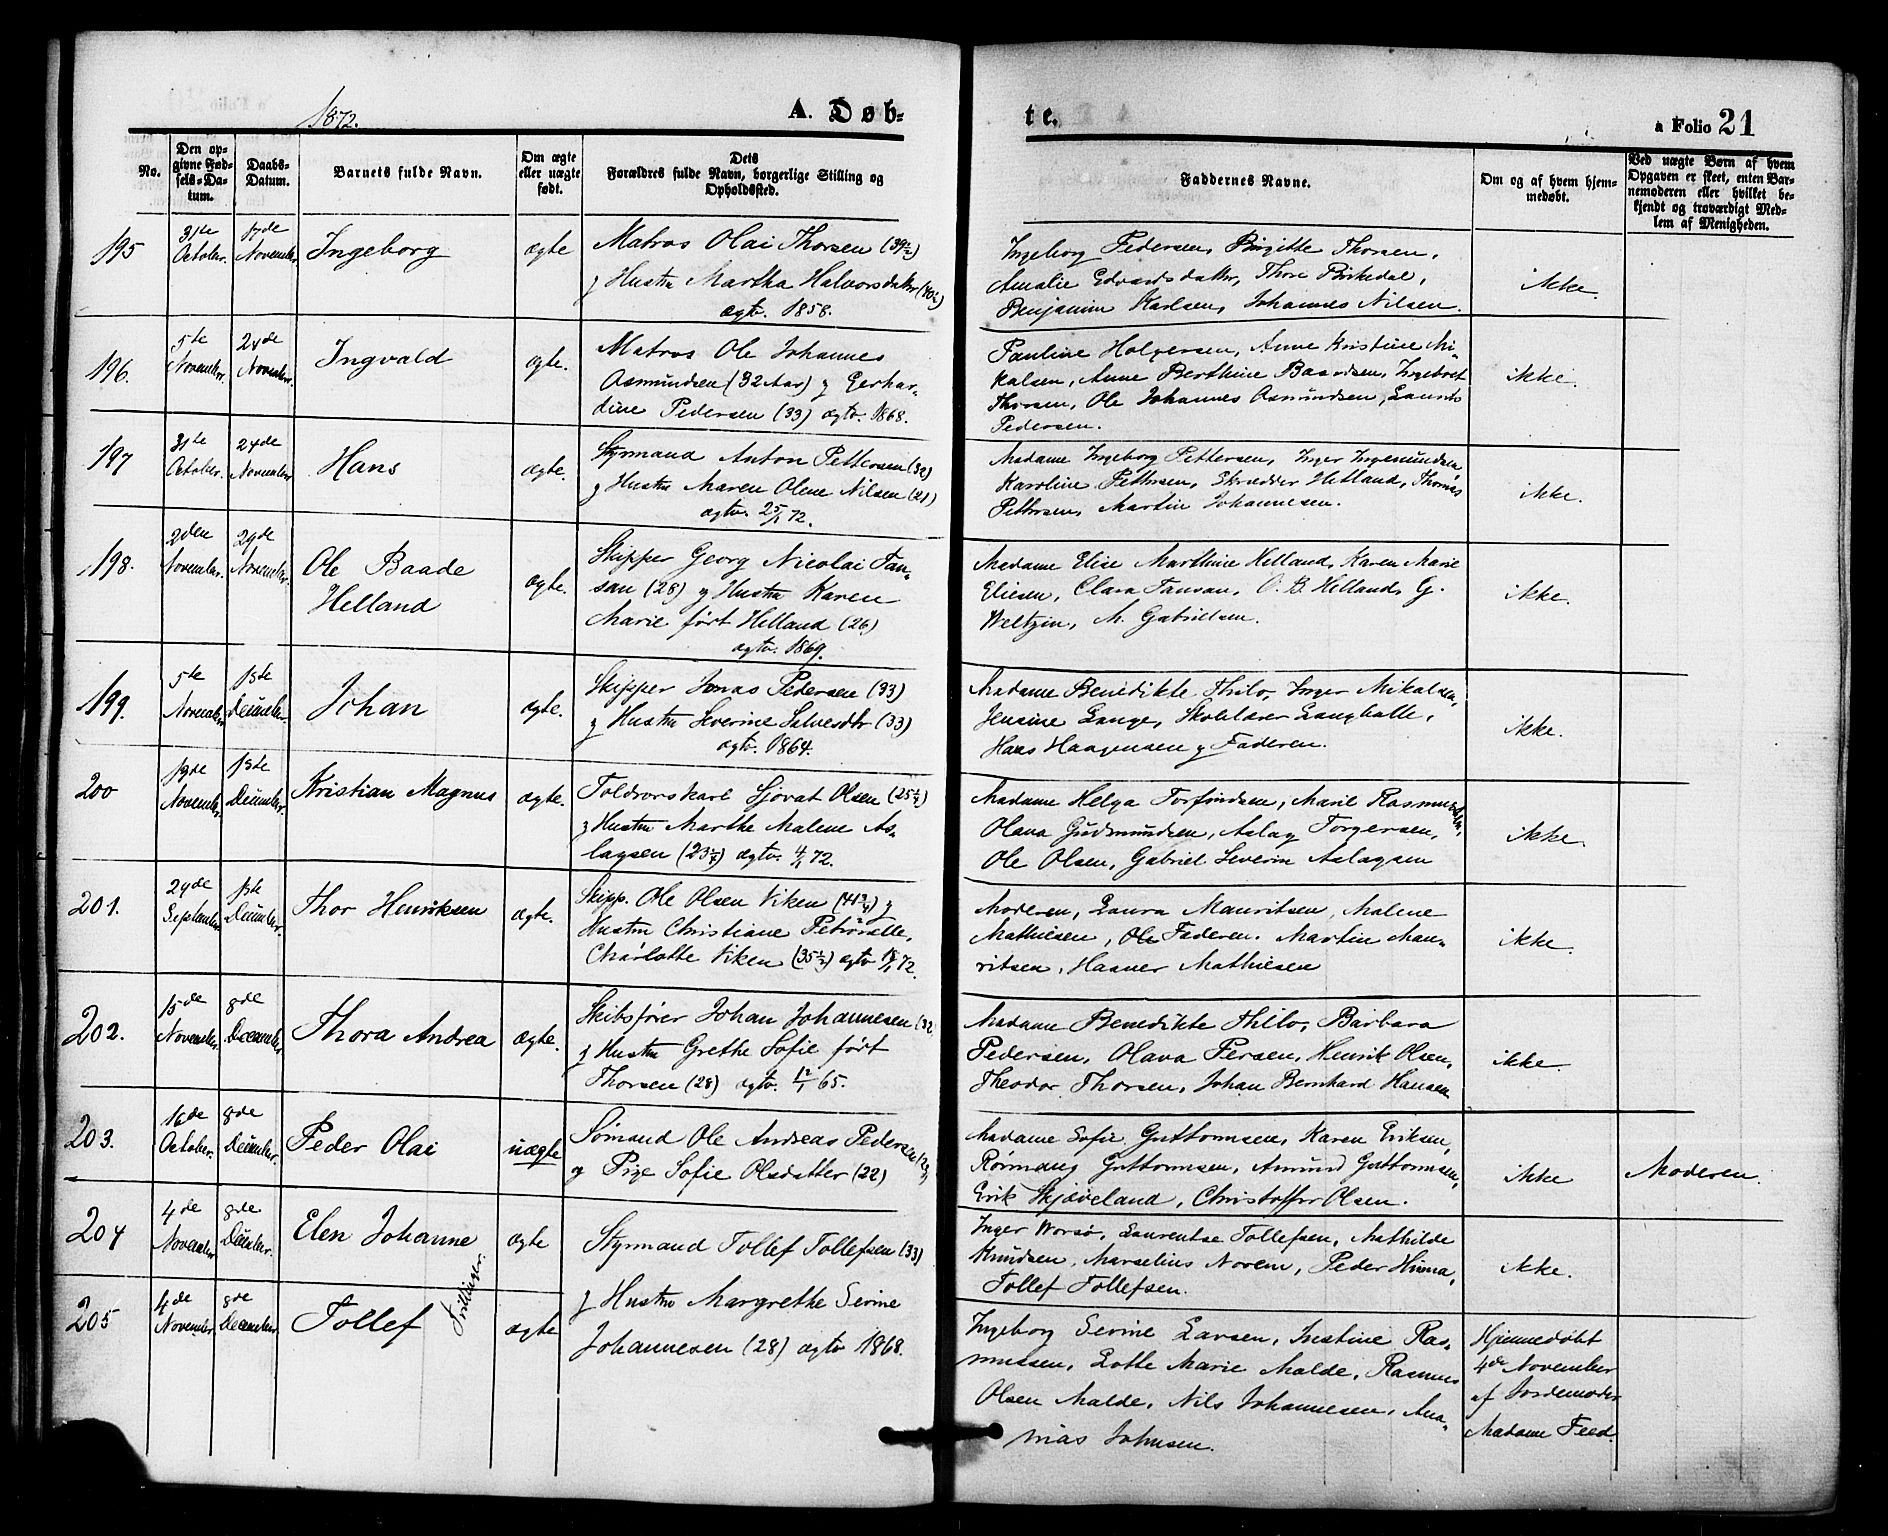 1872.
A. Døb-
te.
a Folio 21
No.
Den op-
givne Fød-
sels-Da-
tum.
Daabs-
Datum.
Barnets fulde Navn.
Om ægte
eller uægte
født.
Dets
Forældres fulde Navn, borgerlige Stilling og
Opholdssted.
Faddernes Navne.
Om og af hvem hjem-
medøbt.
Ved uægte Børn af hvem
Opgaven er skeet, enten Bar-
nemoderen eller hvilket be-
kjendt og troværdigt Med-
lem af Menigheden.
195
31te
October.
17de
November.
Ingeborg
ægte
Matros Olai Thorsen (39½)
og Hustru Martha Halvorsdatter (40½)
ægtv. 1858.
Ingeborg Pedersen, Birgitte Thorsen,
Amalie Edvardsdatter, Thore Birkedal,
Benjamin Karlsen, Johannes Nilsen.
ikke.
196.
5te
November.
24de
November.
Ingvald
ægte.
Matros Ole Johannes
Asmundsen (32 Aar) og Gerhar-
dine Pedersen (33) ægtv. 1868.
Pauline Holgersen, Anne Kristine Mi-
kalsen, Anne Berthine Baardsen, Ingebret
Thorsen, Ole Johannes Asmundsen, Laurits
Pedersen.
ikke.
197
31te
October.
24de
November
Hans
ægte.
Styrmand Anton Pettersen (32)
og Hustru Maren Olene Nilsen (21)
ægtv. 25/1 72.
Madame Ingeborg Pettersen, Inger Ingemundsen
Karoline Pettersen, Skrædder Hetland, Thomas
Pettersen, Martin Johannesen.
ikke.
198.
2den
November.
29de
November.
Ole Baade
Helland
ægte.
Skipper Georg Nicolai Tan-
san (28) og Hustru Karen
Marie født Helland (26)
ægtv. 1869.
Madame Elise Marthine Helland, Karen Marie
Eliesen, Clara Tansan, O. B. Helland, G.
Weltzin, M. Gabrielsen.
ikke.
199.
5te
November
1ste
December.
Johan
ægte.
Skipper Jonas Pedersen (33)
og Hustru Severine Salvesdtr (33)
ægtv. 1864.
Madame Benedikte Thilo, Inger Mikalsen,
Jensine Lange, Skolelærer Langhalle,
Hans Haagensen og Faderen.
ikke.
200
19de
November.
1ste
December.
Kristian Magnus
ægte.
Toldrorskarl Sjovat Olsen (25¼)
og Hustru Marthe Malene As-
lagsen (23¼) ægtv. 4/1 72.
Madame Helga Torfindsen, Marie Rasmussen,
Olava Gudmundsen, Aslag Torgersen,
Ole Olsen, Gabriel Severin Aslagsen
ikke.
201.
29de
September
1ste
December.
Thor Henriksen
ægte.
Skipp. Ole Olsen Viken (41¾) og
Hustru Christiane Petronelle,
Charlotte Viken (35½) ægtv 18/1 72.
Moderen, Laura Mauritsen, Malene
Mathiesen, Ole Faderen. Martin Mau-
ritsen, Haaver Mathiesen
ikke.
202.
15de
November.
8de
December
Thora Andrea
ægte.
Skibsfører Johan Johannesen (32
og Hustru Grethe Sofie født
Thorsen (28) ægtv. 12/1 65.
Madame Benedikte Thilo, Barbara
Pedersen, Olava Persen, Henrik Olsen,
Theodor Thorsen, Johan Bernhard Hansen
ikke.
203.
16de
October.
8de
December.
Peder Olai
uægte
Sømand Ole Andreas Pedersen
og Pige Sofie Olsdatter (22)
Madame Sofie Guttormsen, Karen Eriksen,
Guttormsen, Amund Guttormsen,
Erik Skjæveland, Christoffer Olsen.
ikke
Moderen.
204
4de
November
8de
December.
Elen Johanne
ægte
Styrmand Tollef Tollefsen (33)
Inger Worsø, Laurentse Tollefsen, Mathilde
Knudsen, Marselius Norem, Peder Hinna,
Tollef Tollefsen.
ikke.
205
4de
November.
8de
December.
Tollef
Tvillinger.
ægte
og Hustru Margrethe Serine
Johannesen (28) ægtv 1868.
Ingeborg Serine Larsen, Justine Ras-
mussen, Lotte Marie Malde, Rasmus
Olsen Malde, Nils Johannesen, Ana-
nias Johnsen.
Hjemmedøbt
4de November
af Jordemoder
Madame Feed.